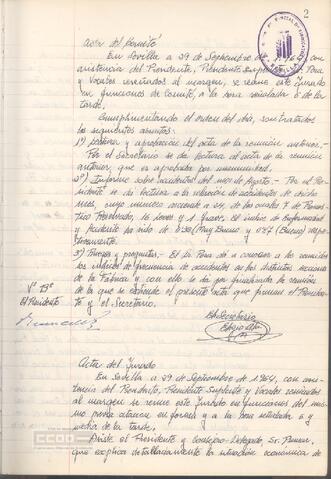 2
Acta del Comité
En Sevilla a 29 de Septiembre de
asistencia del Presidente, Presidente Suplente,
y Vocales reseñados al margen, se reune este Jurado
en funciones de Comité, a la hora señalada 6 de la
tarde.
Cumplimentando el orden del día, son tratados
los siguientes asuntos:
1º) Lectura y aprobación del acta de la reunión anterior.-
Por el Secretario se da lectura al acta de la reunión
anterior, que es aprobada por unanimidad.
2º) Informe sobre accidentes del mes de Agosto.- Por el Presidente
se da lectura a la relación de accidentes de dicho
mes, cuyo número asciende a 24, de los cuales 7 de
Reservado, 16 Leves y 1 Grave. El índice de
y ha sido de (Muy Bueno) y 0'87 (Bueno)
3º) Ruegos y preguntas.- El Sr. da a conocer a los reunidos
los índices de frecuencia de accidentes en las distintas secciones
de la Fábrica y con ello se da por finalizada la reunión
de la que se extiende el presente acta que firman el Presidente
y el Secretario.
Vº Bº
El Presidente
El Secretario
Acta del Jurado
En Sevilla a 29 de Septiembre de 1964, con asistencia
del Presidente, Presidente Suplente y Vocales reseñados
al margen se reune este Jurado en funciones del mismo
y a la hora señalada 6 y
media de la tarde.
Asiste el Presidente y Consejero-Delegado, Sr.
que explica detalladamente la situación económica de
CCOO